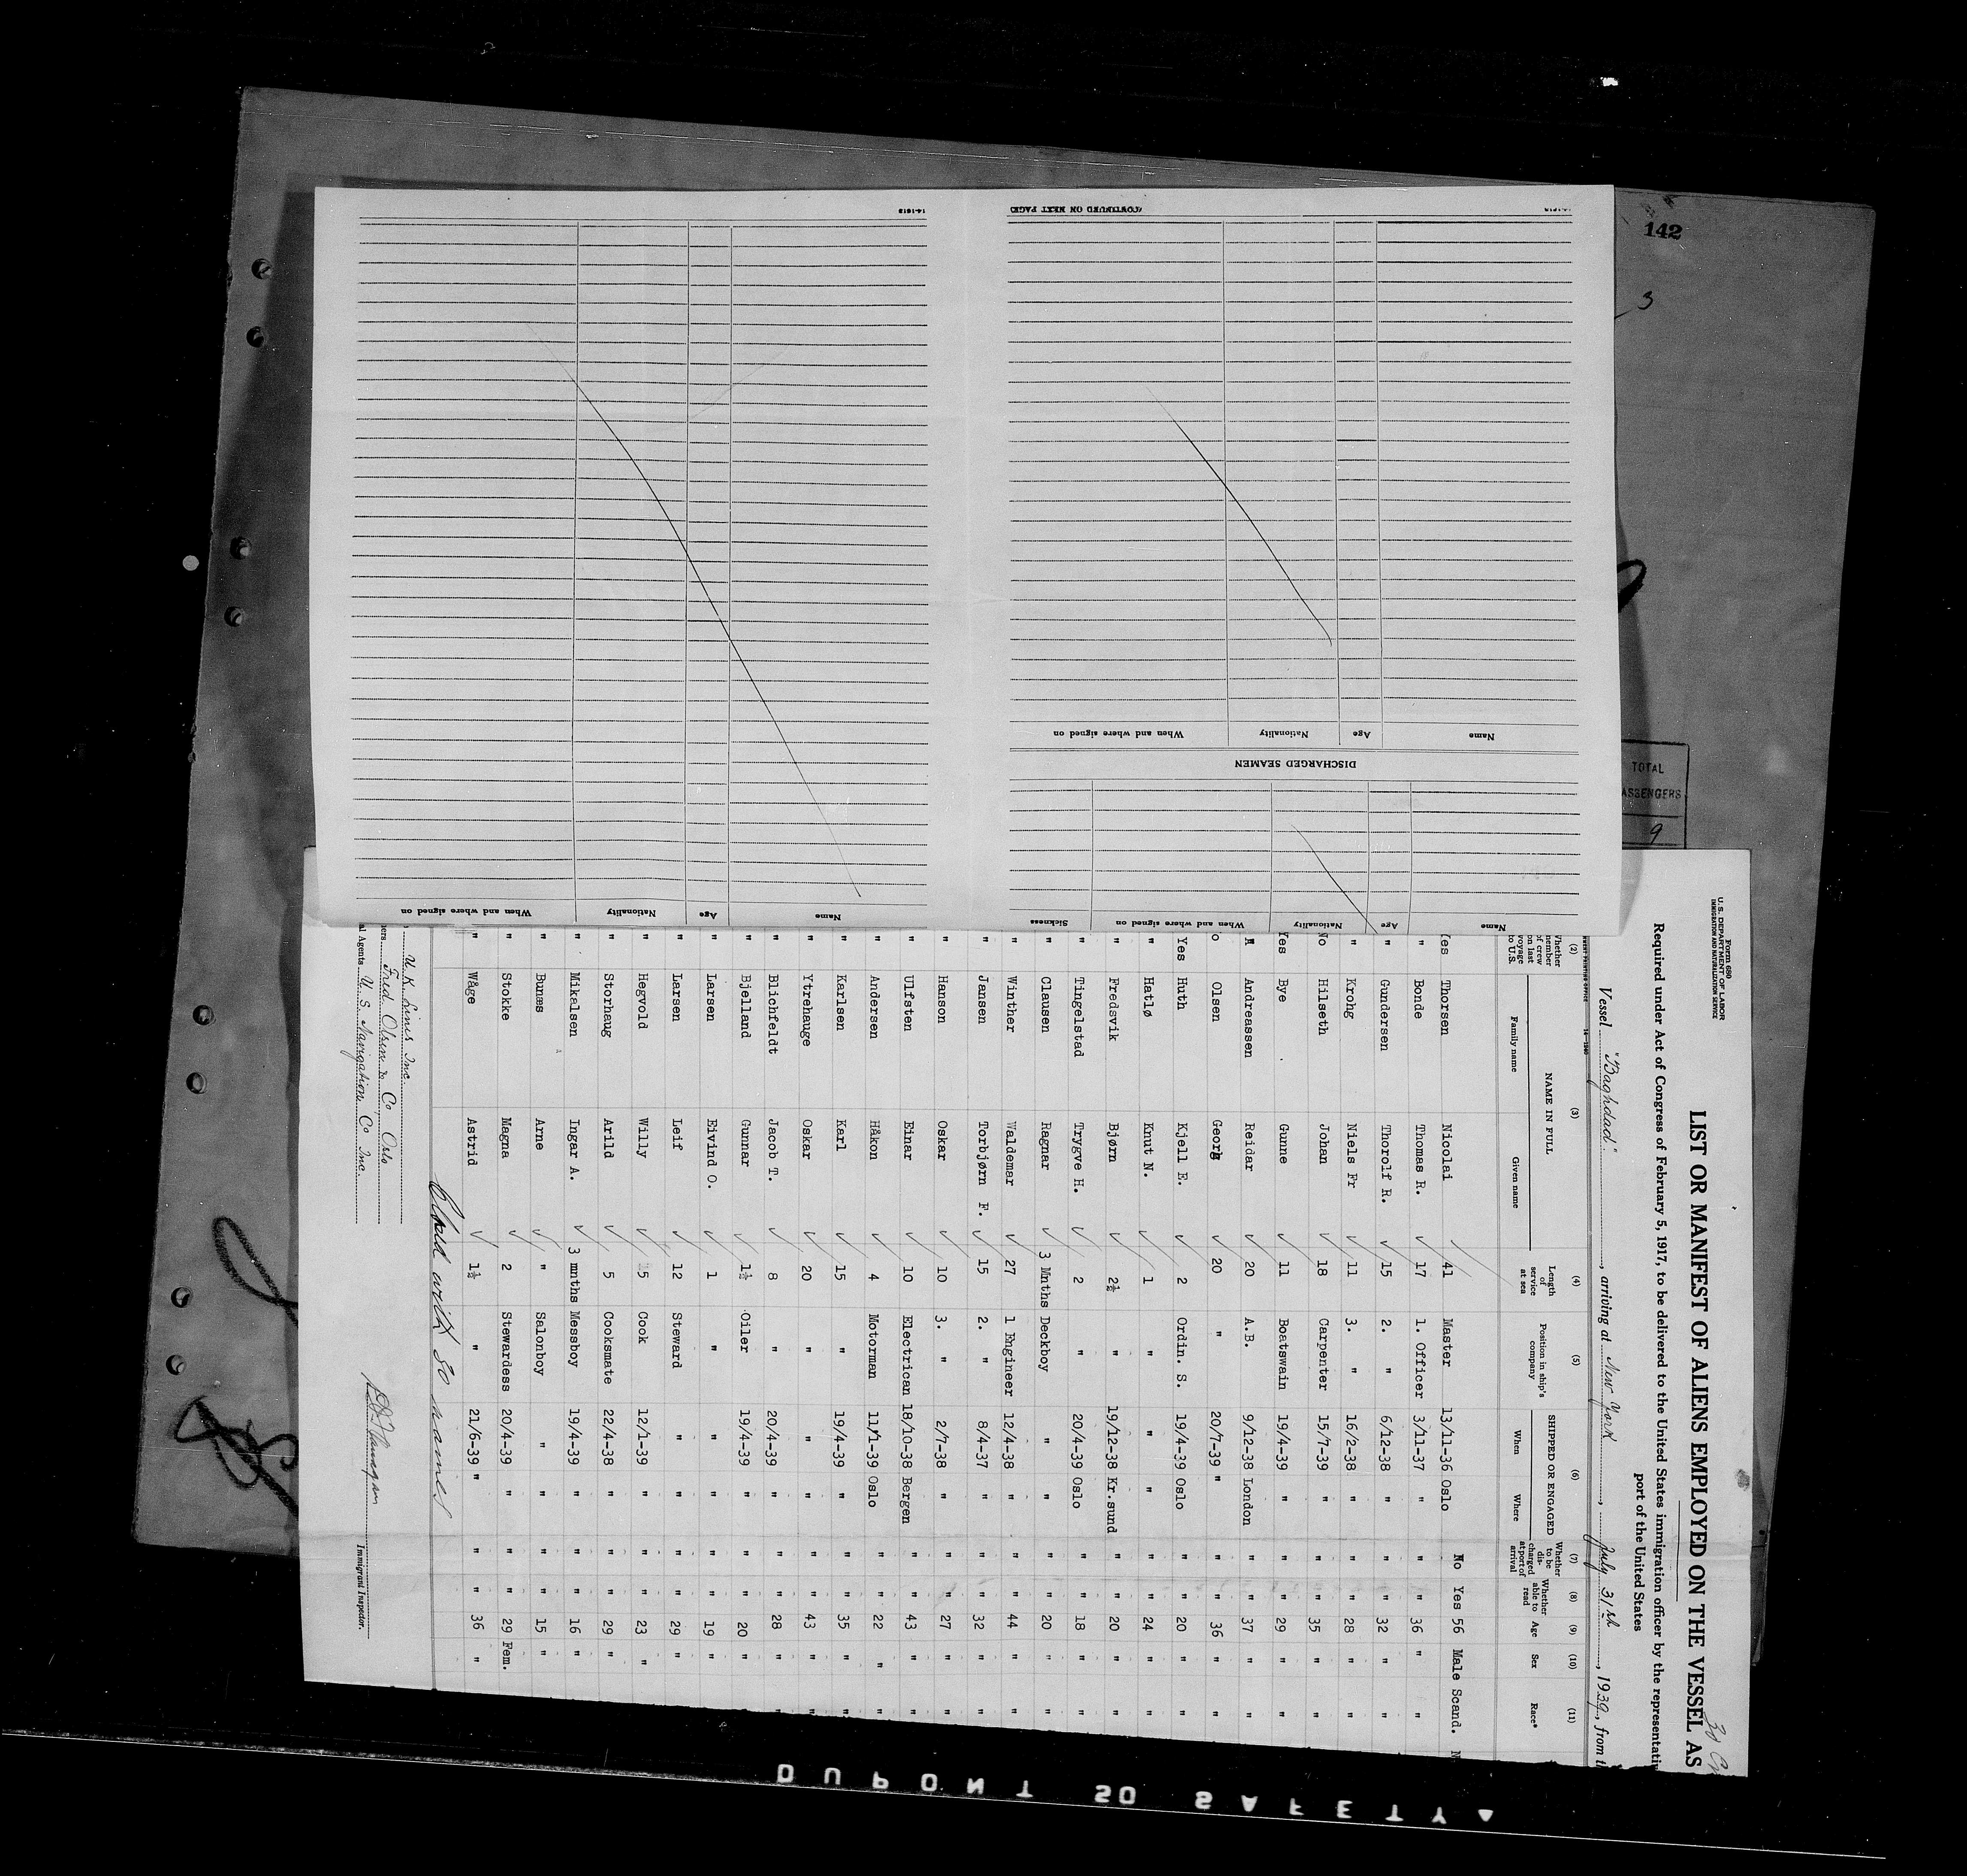 142
3
TOTAL
ASSENGERS
9
14-1613
(CONTINUED ON NEXT PAGE)
Name Age Nationality When and where signed on
DISCHARGED SEAMEN
Name Age Nationality When and where signed on Sickness
Name Age Nationality When and where signed on
Form 680
U. S. DEPARTMENT OF LABOR
IMMIGRATION AND NATURALIZATION SERVICE
LIST OR MANIFEST OF ALIENS EMPLOYED ON THE VESSEL AS
Required under Act of Congress of February 5, 1917, to be delivered to the United States immigration officer by the representativ
port of the United States
Vessel "Baghdad", arriving at New York, July 31, 1939, from
(2) (3) (4) (5) (6) (7) (8) (9) (10) (11)
Whether member of crew on last voyage to U.S. NAME IN FULL Family name Given name Length of service at sea Position in ship's company SHIPPED OR ENGAGED When Where Whether to be discharged at port of arrival Whether able to read Age Sex Race*
Yes Thorsen Nicolai 41 Master 13/11-36 Oslo No Yes 56 Male Scand. N
" Bonde Thomas R. 17 1. Officer 3/11-37 " " " 36 " "
" Gundersen Thorolf R. 15 2. " 6/12-38 " " " 32 " "
" Krohg Niels Fr 11 3. " 16/2-38 " " " 28 " "
No Hilseth Johan 18 Carpenter 15/7-39 " " " 35 " "
Yes Bye Gunne 11 Boatswain 19/4-39 " " " 29 " "
" Andreassen Reidar 20 A.B. 9/12-38 London " " 37 " "
o Olsen Georg 20 " 20/7-39 " " " 36 " "
Yes Huth Kjell E. 2 Ordin. S. 19/4-39 Oslo " " 20 " "
" Hatlø Knut N. 1 " " " " " 24 " "
" Fredsvik Bjørn 2½ " 19/12-38 Kr.sund " " 20 " "
" Tingelstad Trygve H. 2 " 20/4-39 Oslo " " 18 " "
" Clausen Ragnar 3 Mnths Deckboy " " " " 20 " "
" Winther Waldemar 27 1 Engineer 12/4-38 " " " 44 " "
" Jansen Torbjørn F. 15 2. " 8/4-37 " " " 32 " "
" Hanson Oskar 10 3. " 2/7-38 " " " 27 " "
" Ulfsten Einar 10 Electrican 18/10-38 Bergen " " 43 " "
" Andersen Håkon 4 Motorman 11/1-39 Oslo " " 22 " "
" Karlsen Karl 15 " 19/4-39 " " " 35 " "
" Ytrehauge Oskar 20 " " " " " 43 " "
" Blichfeldt Jacob T. 8 " 20/4-39 " " " 28 " "
" Bjelland Gunnar 1½ Oiler 19/4-39 " " " 20 " "
" Larsen Eivind O. 1 " " " " " 19 " "
" Larsen Leif 12 Steward " " " " 29 " "
" Hegvold Willy 5 Cook 12/1-39 " " " 23 " "
" Storhaug Arild 5 Cooksmate 22/4-38 " " " 29 " "
" Mikalsen Ingar A. 3 mnths Messboy 19/4-39 " " " 16 " "
" Bunæs Arne " Salonboy " " " " 15 " "
" Stokke Magna 2 Stewardess 20/4-39 " " " 29 Fem. "
" Wåge Astrid 1½ " 21/6-39 " " " 36 "
with 30 names
U. K. Lines Inc.
ners Fred Olsen & Co Oslo
al Agents U. S. Navigation Co Inc.
Immigrant Inspector.
DUPONT S0 SAFETY